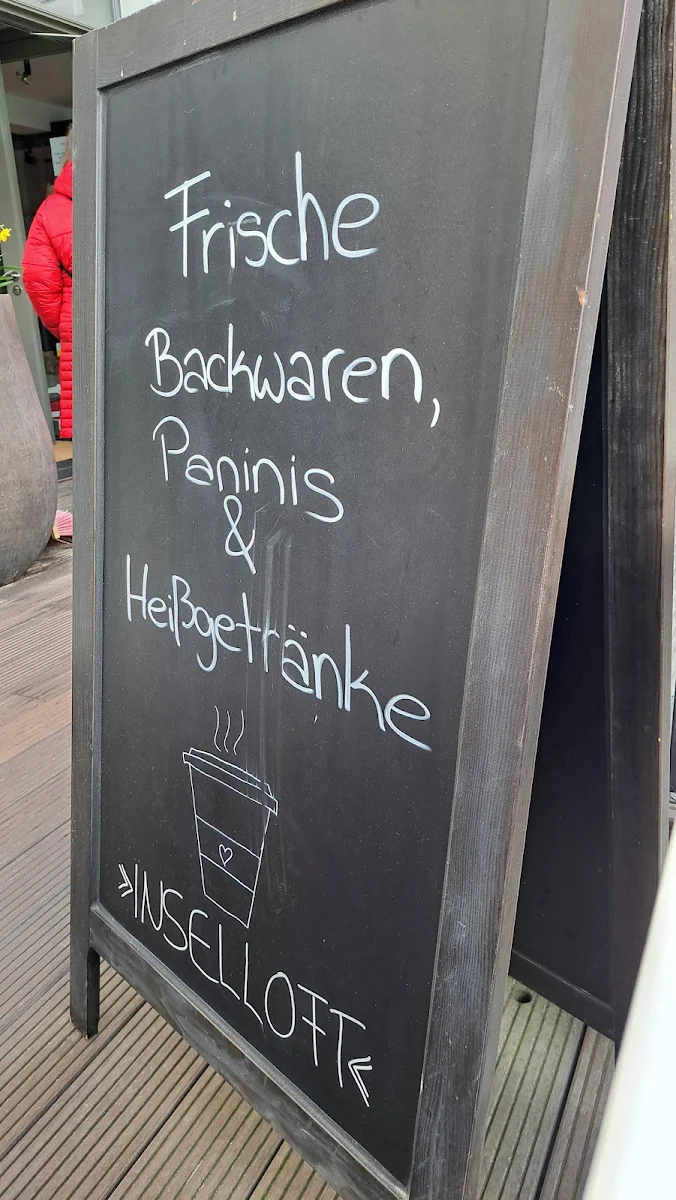 Frische
Backwaren,
Paninis
&
Heißgetränke
»INSELLOFT«